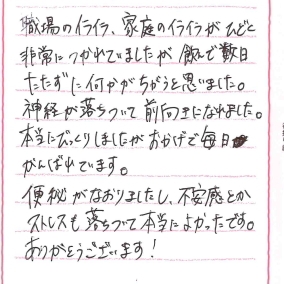 職場のイライラ、家庭のイライラがひどく
非常につかれていましたが飲んで数日
たたずに何かがちがうと思いました。
神経が落ちついて前向きになれました。
本当にびっくりしましたがおかげで毎日
がんばれています。
便秘がなおりましたし、不安感とか
ストレスも落ちついて本当によかったです。
ありがとうございます!